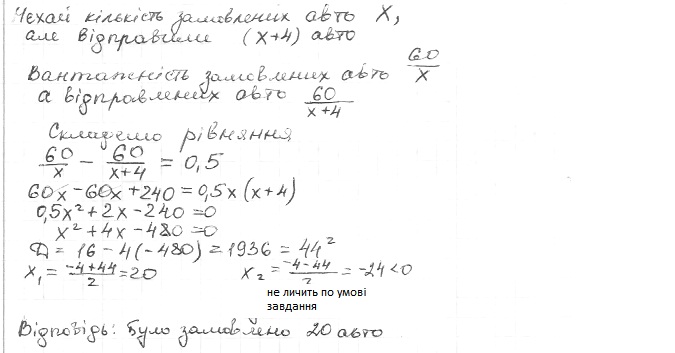 Нехай кількість замовлених авто x,
але відправили (x+4) авто
Вантажність замовлених авто 60/x
а відправлених авто 60/x+4
Складемо рівняння
60/x - 60/x+4 = 0,5
60x-60x+240=0,5x(x+4)
0,5x²+2x-240=0
x²+4x-480=0
Д = 16-4(-480)=1936=44²
x₁ = -4+44/2 = 20 x₂ = -4-44/2 = -24<0
не личить по умові
завдання
Відповідь: Було замовлено 20 авто